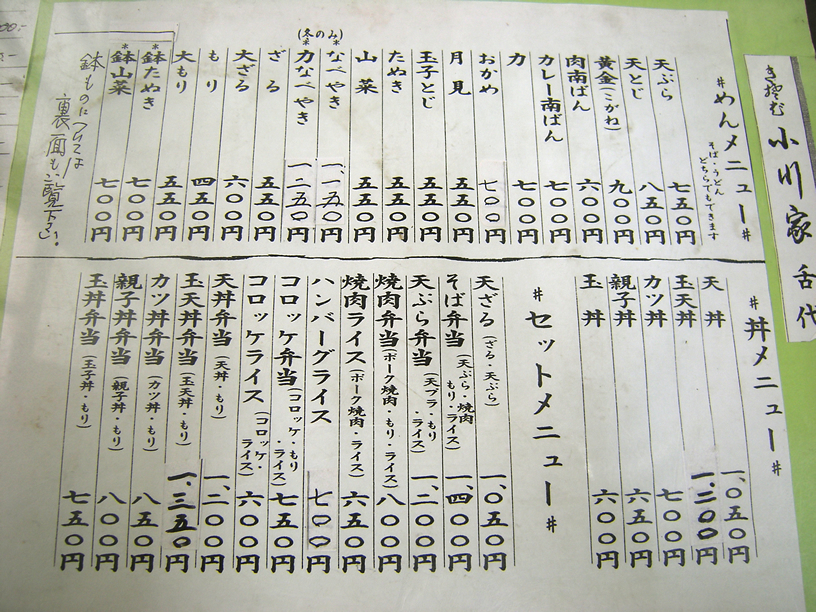 小川家 舌代
#めんメニュー#
そば・うどん
どちらでもできます
天ぷら 七五〇円
天とじ 八五〇円
黄金(こがね) 九〇〇円
肉南ばん 六〇〇円
カレー南ばん 七〇〇円
力 七〇〇円
おかめ 七〇〇円
月見 五五〇円
玉子とじ 五五〇円
たぬき 五五〇円
山菜 五五〇円
(冬のみ)
*なべやき 一、一五〇円
*力なべやき 一、二五〇円
ざる 五五〇円
大ざる 六〇〇円
もり 四五〇円
大もり 五五〇円
*鉢たぬき 七〇〇円
*鉢山菜 七〇〇円
鉢ものについては
裏面もご覧下さい!
#丼メニュー#
天丼 一、〇五〇円
玉天丼 一、二〇〇円
カツ丼 七〇〇円
親子丼 六五〇円
玉丼 六〇〇円
#セットメニュー#
天ざる(ざる・天ぷら) 一、〇五〇円
そば弁当(天ぷら・焼肉もり・ライス) 一、四〇〇円
天ぷら弁当(天プラ・もり・ライス) 一、二〇〇円
焼肉弁当(ポーク焼肉・もり・ライス) 八〇〇円
焼肉ライス(ポーク焼肉・ライス) 六五〇円
ハンバーグライス 七〇〇円
コロッケ弁当(コロッケ・もり・ライス) 七五〇円
コロッケライス(コロッケ・ライス) 六〇〇円
天丼弁当(天丼・もり) 一、二〇〇円
玉天丼弁当(玉天丼・もり) 一、三五〇円
カツ丼弁当(カツ丼・もり) 八五〇円
親子丼弁当(親子丼・もり) 八〇〇円
玉丼弁当(玉子丼・もり) 七五〇円